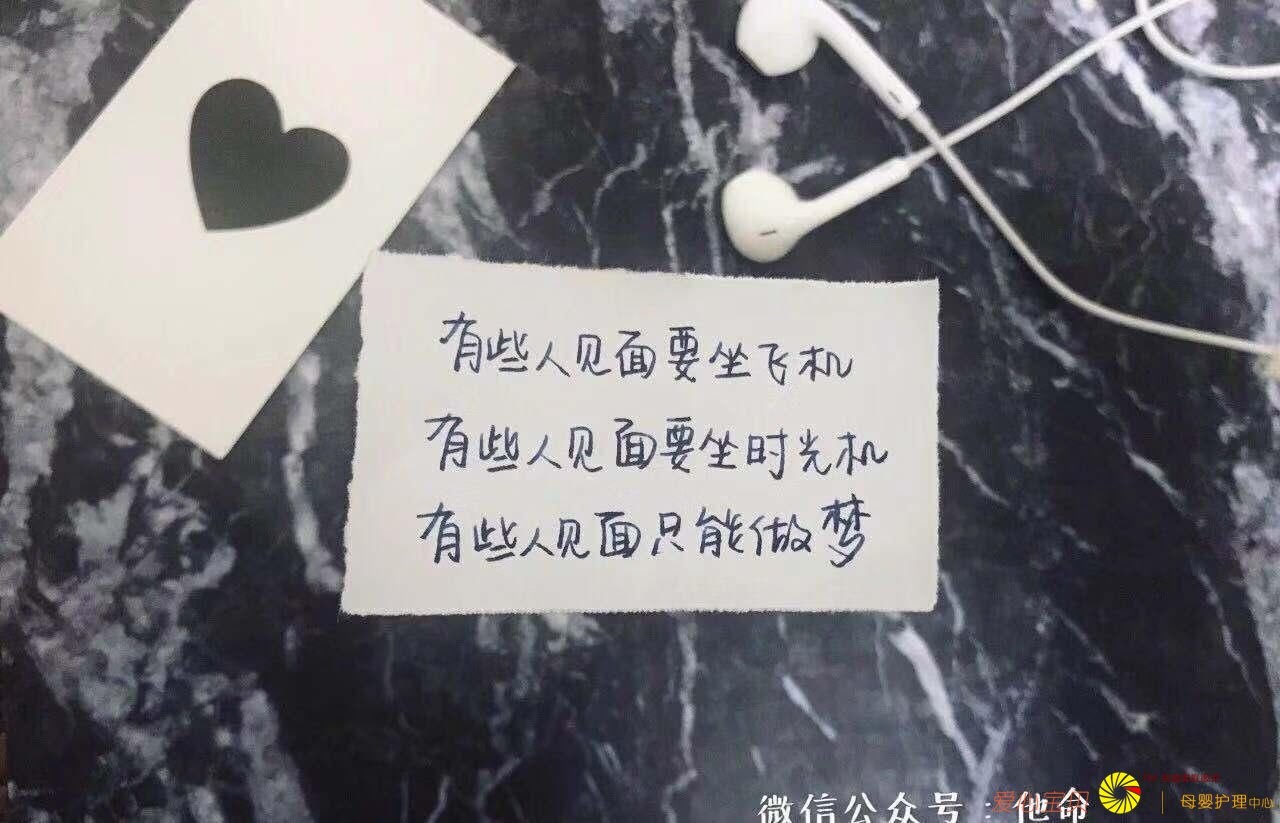 有些人见面要坐飞机
有些人见面要坐时光机
有些人见面只能做梦
微信公众号：他命
母婴护理中心